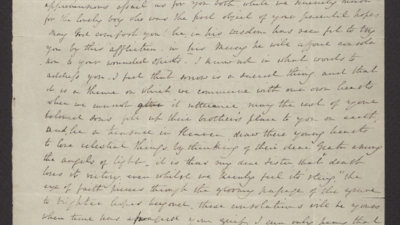 apprehensions afflict us for you both while we sincerely mourn
for the lovely boy who was the fond object of your parental hopes
may He comfort you! he in his wisdom hath seen fit to try
you by this affliction. in his mercy he will afford consola
ion to your wounded spirits. I know not in what words to
address you. I feel that sorrow is a sacred thing and that
it is a theme on which we commune with our own hearts
when we cannot give it utterance may the rest of your
beloved sons fill up their brothers place to you on earth
and be a in Heaven draw their young hearts
to love celestial things, by thinking of their dear among
the angels of light. it is thus my dear sister that death
loses its victory, even whilst we keenly feel its sting. "the
eye of faith" pierces through the gloomy passage of the grave
to brighter hopes beyond, these consolations will be yours
when time has your grief, I can only pray that